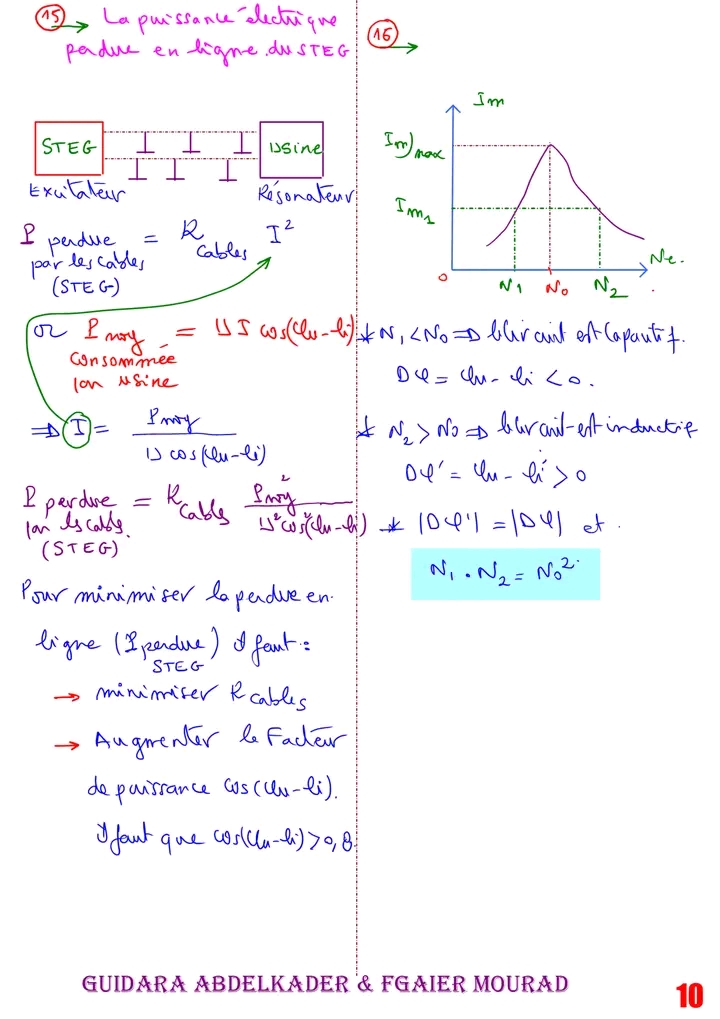 15 → La puissance électrique
perdue en ligne du STEG
STEG
Usine
Excitateur
Résonateur
P perdue = R cables I²
par les cables
(STEG)
or P moy = U I cos(φu-φi)
consommée
par usine
⇒ I = Pmoy / U cos(φu-φi)
P perdue = R cables Pmoy² / U² cos²(φu-φi)
par les cables.
(STEG)
Pour minimiser la perdue en
ligne (P perdue STEG) il faut :
→ minimiser R cables
→ Augmenter le Facteur
de puissance cos(φu-φi).
Il faut que cos(φu-φi) > 0,8.
16 →
Im
Im)max
Im1
0
N1
N0
N2
Ne.
* N1 < N0 ⇒ le circuit est capacitif.
Dφ = φu - φi < 0.
* N2 > N0 ⇒ le circuit est inductif
Dφ' = φu - φi' > 0
* |Dφ'| = |Dφ| et
N1 . N2 = N0².
GUIDARA ABDELKADER & FGAIER MOURAD
10